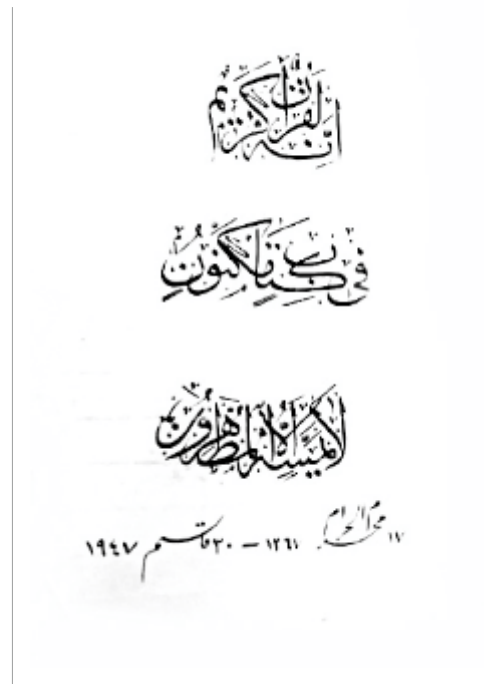 إِنَّهُ لَقُرْآنٌ كَرِيمٌ
فِي كِتَابٍ مَكْنُونٍ
لَا يَمَسُّهُ إِلَّا الْمُطَهَّرُونَ
١٧ محرم الحرام — قاسم ١٩٤٧